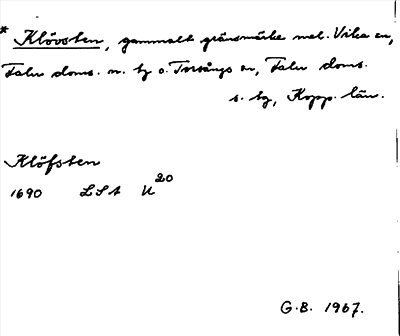 * Klövsten, gammalt gränsmärke mel. Vika sn,
Falu doms. n. tg o. Torsångs sn, Falu doms.
s. tg, Kopp. län.
Klöfsten
1690 LSA U20
G.B. 1967.